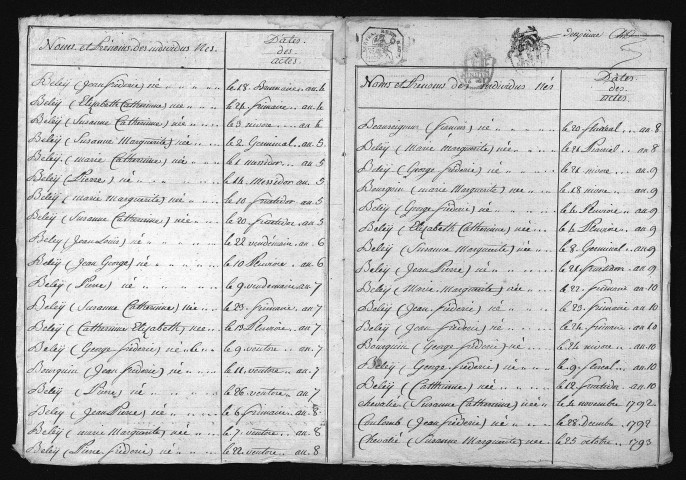 Noms et Prénoms des individus Nés.
Dates
des
actes.
Beley (Jean frédéric) né le 18. Brumaire an 4
Beley (Elizabeth Catherinne) née le 24. frimaire an 4
Beley (Suzanne Catherinne) née le 3 nivose an 4
Beley (Suzanne Marguerite) née le 2 Germinal an 5
Beley (marie Catherinne) née le 1 messidor an 5
Beley (Pierre) né le 14 Messidor an 5
Beley (marie marguerite) née le 10 fructidor an 5
Beley (Suzanne Catherinne) née le 20 fructidor an 5
Beley (Jean Louis) né le 22 vendémiaire an 6
Beley (Jean George) né le 10 Pluviose an 6
Beley (Pierre) né le 9 vendemaire an 7
Beley (Suzanne Catherinne) née le 23 frimaire an 7
Beley (Catherinne Elizabeth) née le 13 Pluviose an 7
Beley (George frédéric) né le 9 ventose an 7
Bourquin (Jean frédéric) né le 11 ventose an 7
Beley (Pierre) né le 26 ventose an 7
Beley (Jean Pierre) né le 6 frimaire an 8
Beley (marie marguerite) née le 7 ventose an 8
Beley (Pierre frédéric) né le 22 ventose an 8
deuxième
Noms et Prénoms des Individus Nés
Dates
des
actes.
Beauseigneur (francois) né le 20 floréal an 8
Beley (Marie Marguerite) née le 21 Prairial an 8
Beley (George frédéric) né le 26 nivose an 9
Bourquin (marie Marguerite) née le 18 nivose an 9
Beley (George frédéric) né le 4 Pluviose an 9
Beley (Elizabeth Catherinne) née le 4 Pluviose an 9
Beley (Suzanne Marguerite) née le 8 Germinal an 9
Beley (Jean Pierre) né le 21 fructidor an 9
Beley (Marie Marguerite) née le 22 frimaire an 10
Beley (Jean frédéric) né le 23 frimaire an 10
Beley (Jean frédéric) né le 24 frimaire an 10
Bourquin (George frédéric) né le 24 nivose an 10
Beley (George frédéric) né le 9 floréal an 10
Beley (Catherinne) née le 12 fructidor an 10
Chevalié (Suzanne Catherinne) née le 4 novembre 1792
Coulomb (Jean frédéric) né le 28 Decembre 1792
Chevalié (Suzanne Marguerite) née le 25 octobre 1793